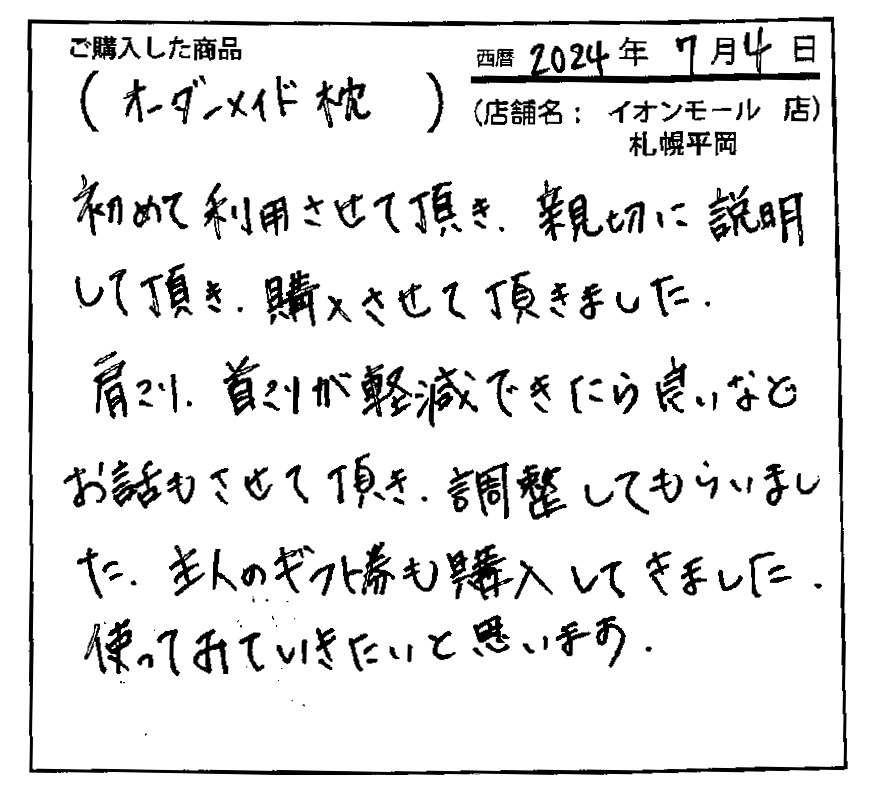 ご購入した商品
西暦 2024年 7月4日
(オーダーメイド枕)
(店舗名: イオンモール 店)
札幌平岡
初めて利用させて頂き、親切に説明
して頂き、購入させて頂きました。
肩こり、首こりが軽減できたら良いなど
お話もさせて頂き、調整してもらいまし
た。主人のギフト券も購入してきました。
使ってみていきたいと思います。